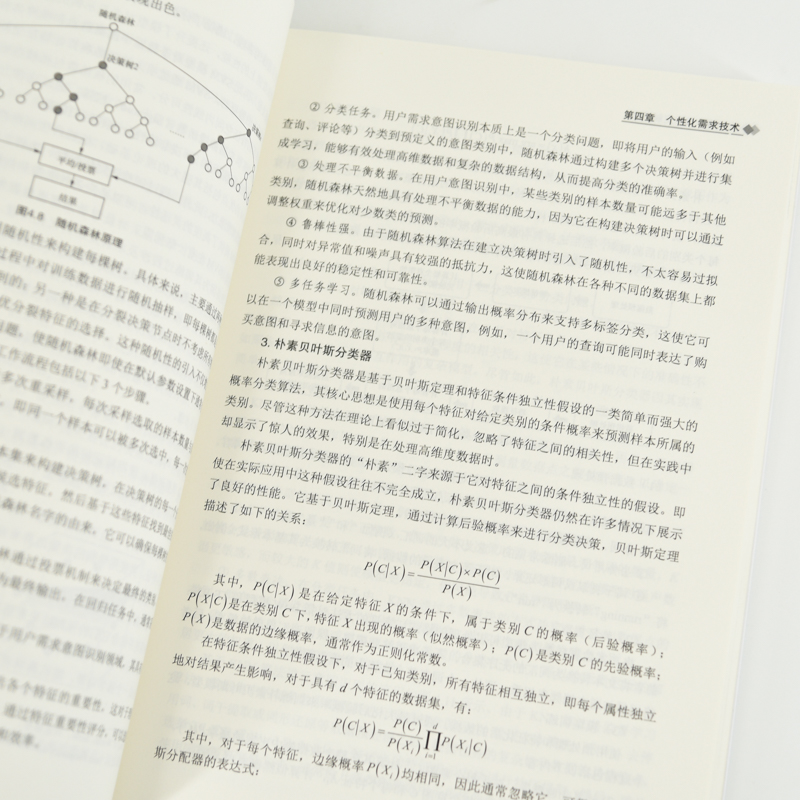 现出色。
随机森林
决策树2
平均/投票
结果
图4.8 随机森林原理
随机性来构建每棵树。具体来说，主要通过
过程中对训练数据进行随机抽样，即每棵树
到的；另一种是在分裂决策节点时不考虑所
优分裂特征的选择。这种随机性的引入不仅
问题，使随机森林即使在默认参数设置下
工作流程包括以下3个步骤。
多次重采样，每次采样选取的样本数量
，即同一个样本可以被多次选中，每一
本集来构建决策树。在决策树的每一
候选特征，然后基于这些特征找到最
森林名字的由来，它可以确保每棵
林通过投票机制来决定最终的类
为最终输出。在回归任务中，
于用户需求意图识别领域，其
各个特征的重要性，这对于
，通过特征重要性评分，可以
和效率。
第四章 个性化需求技术
② 分类任务。用户需求意图识别本质上是一个分类问题，即将用户的输入（例如
查询、评论等）分类到预定义的意图类别中，随机森林通过构建多个决策树并进行集
成学习，能够有效处理高维数据和复杂的数据结构，从而提高分类的准确率。
③ 处理不平衡数据。在用户意图识别中，某些类别的样本数量可能远多于其他
类别，随机森林天然地具有处理不平衡数据的能力，因为它在构建决策树时可以通过
调整权重来优化对少数类的预测。
④ 鲁棒性强。由于随机森林算法在建立决策树时引入了随机性，不太容易过拟
合，同时对异常值和噪声具有较强的抵抗力，这使随机森林在各种不同的数据集上都
能表现出良好的稳定性和可靠性。
⑤ 多任务学习。随机森林可以通过输出概率分布来支持多标签分类，这使它可
以在一个模型中同时预测用户的多种意图，例如，一个用户的查询可能同时表达了购
买意图和寻求信息的意图。
3. 朴素贝叶斯分类器
朴素贝叶斯分类器是基于贝叶斯定理和特征条件独立性假设的一类简单而强大的
概率分类算法，其核心思想是使用每个特征对给定类别的条件概率来预测样本所属的
类别。尽管这种方法在理论上看似过于简化，忽略了特征之间的相关性，但在实践中
却显示了惊人的效果，特别是在处理高维度数据时。
朴素贝叶斯分类器的“朴素”二字来源于它对特征之间的条件独立性的假设。即
使在实际应用中这种假设往往不完全成立，朴素贝叶斯分类器仍然在许多情况下展示
了良好的性能。它基于贝叶斯定理，通过计算后验概率来进行分类决策，贝叶斯定理
描述了如下的关系：
P(C|X)=P(X|C)×P(C)/P(X)
其中，P(C|X)是在给定特征X的条件下，属于类别C的概率（后验概率）；
P(X|C)是在类别C下，特征X出现的概率（似然概率）；P(C)是类别C的先验概率；
P(X)是数据的边缘概率，通常作为正则化常数。
在特征条件独立性假设下，对于已知类别，所有特征相互独立，即每个属性独立
地对结果产生影响，对于具有d个特征的数据集，有：
P(C|X)=P(C)/P(Xᵢ)∏ᵢ₌₁ᵈP(Xᵢ|C)
其中，对于每个特征，边缘概率P(Xᵢ)均相同，因此通常忽略它，
斯分配器的表达式：